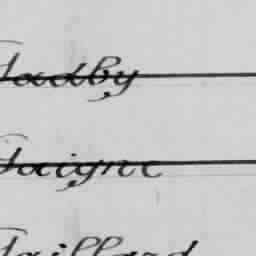 Tadby
Taigne
Taillard